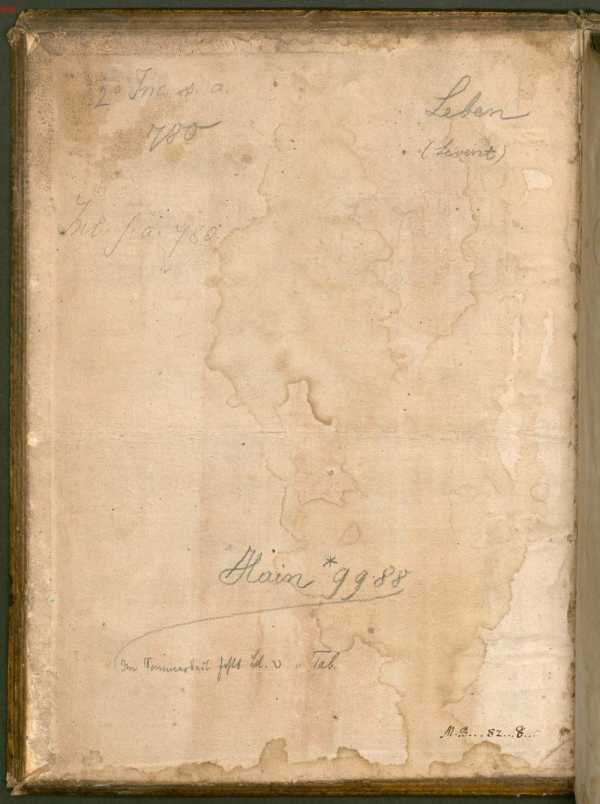 2° Inc. s. a.
780
Leben
Inc. s. a. 780
Hain *9988
Im Sommerteil fehlt
Tab.
M.B...82...8...